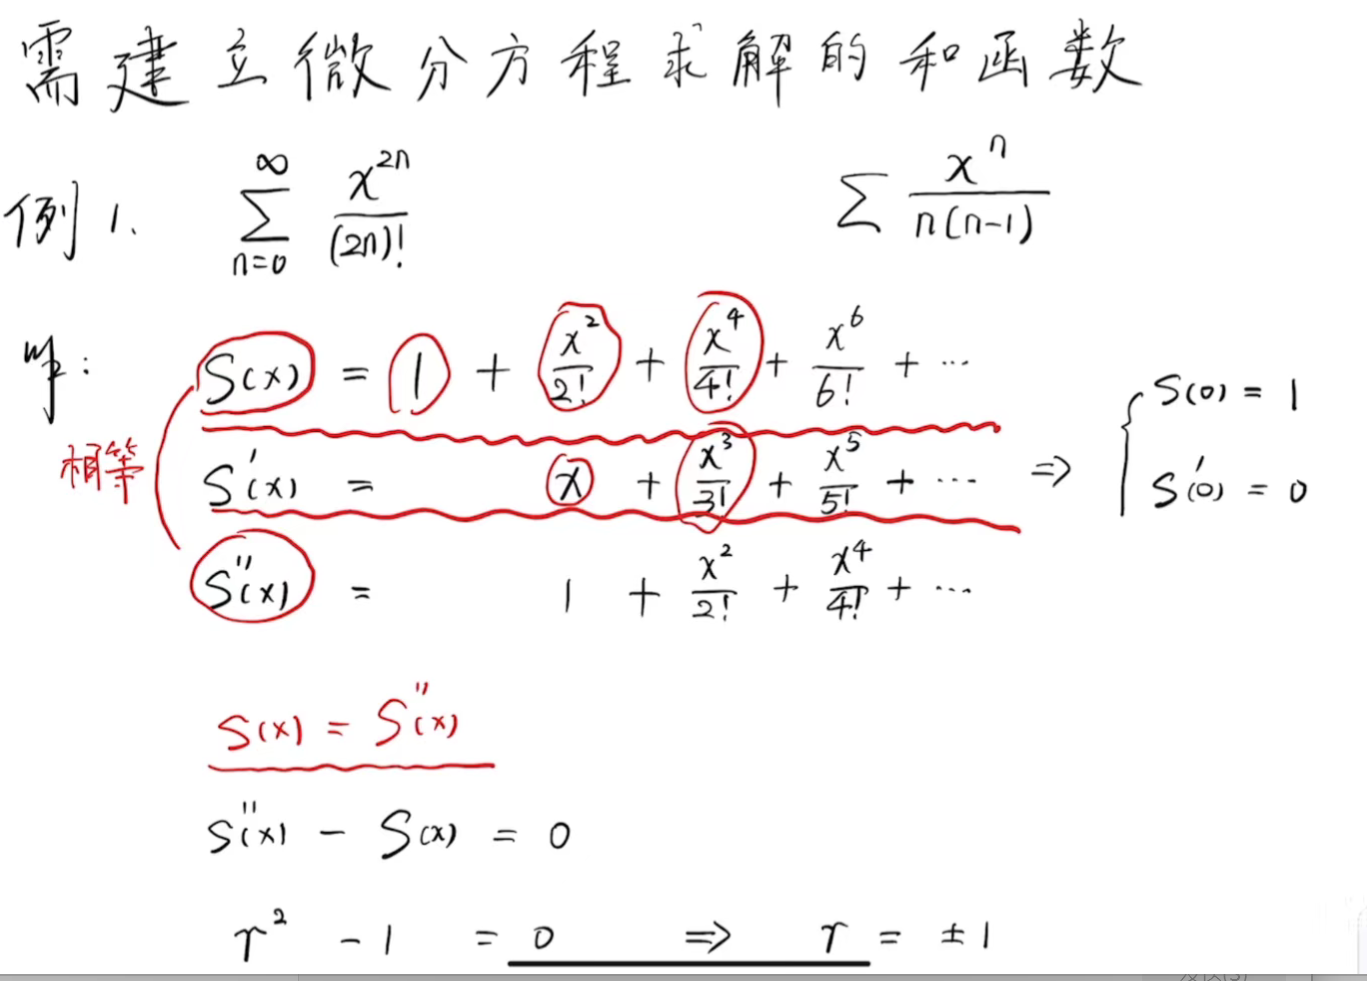 需建立微分方程求解的和函数
例1. ∑_{n=0}^{∞} x^{2n}/(2n)! ∑ x^n/(n(n-1))
解: S(x) = 1 + x²/2! + x⁴/4! + x⁶/6! + ⋯
相等 S'(x) = x + x³/3! + x⁵/5! + ⋯ ⇒ { S(0) = 1
S'(0) = 0
S''(x) = 1 + x²/2! + x⁴/4! + ⋯
S(x) = S''(x)
S''(x) - S(x) = 0
r² - 1 = 0 ⇒ r = ±1